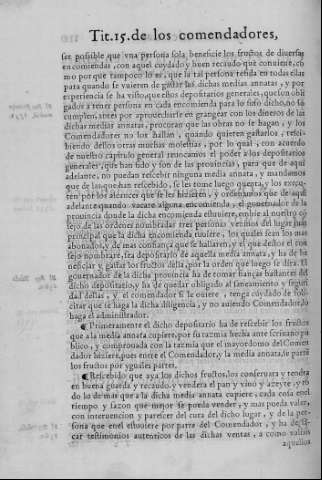 Tit.15.de los comendadores,
ser possible que vna persona sola beneficie los fructos de diuersas
encomiendas, con aquel cuydado y buen recaudo que conuiene, co
mo por que tampoco lo es, que la tal persona resida en todas ellas
para quando se vuieren de gastar las dichas medias annatas, y por
experiencia se ha visto, que estos depositarios generales, que son obli
gados a tener persona en cada encomienda para lo suso dicho, no lo
cumplen, antes por aprouecharse en grangear con los dineros de las
dichas medias annatas, procuran que las obras no se hagan, y los
Comendadores no los hallan, quando quieren gastarlos, resci
biendo dellos otras muchas molestias, por lo qual, con acuerdo
de nuestro capitulo general reuocamos el poder a los depositarios
generales, que han sido y son de las prouincias, para que de aqui
adelante, no puedan rescebir ninguna media annata, y mandamos
que de las que han rescebido, se les tome luego quenta, y los
por los alcances que se les hizieren, y ordenamos que de aqui
adelante quando vacare alguna encomienda, el gouernador de la
prouincia donde la dicha encomienda estuuiere, embie al nuestro co
sejo de las ordenes nombradas tres personas vezinos del lugar
principal que la dicha encomienda tuuiere, los quales sean los mas
abonados, y de mas confiança que se hallaren, y el que dellos el con
sejo nombrare, sea depositario de aquella media annata, y ha de be
neficiar y gastar los fructos della, por la orden que luego se dira. El
gouernador de la dicha prouincia ha de tomar fianças bastantes del
dicho depositario, y ha de quedar obligado al saneamiento, y seguri
dad dellas, y el comendador si le ouiere, tenga cuydado de soli
citar que se haga la dicha diligencia, y no auiendo Comendador, lo
haga el administrador.
¶ Primeramente el dicho depositario ha de rescebir los fructos
que a la media annata cupieren, por su tazmia hecha ante scriuano pu
blico, y comprouada con la tazmia que el mayordomo del Comen
dador hiziere, pues entre el Comendador, y la media annata, se parte
los fructos por yguales partes.
¶ Rescebido que aya los dichos fructos, los conseruara y tendra
en buena guarda y recaudo, y vendera el pan y vino y azeyte, y to
do lo de mas que a la dicha media annata cupiere, cada cosa en el
tiempo y sazon que mejor se pueda vender, y mas pueda valer,
con interuencion y parescer del cura del dicho lugar, y de la per
sona que en el estuuiere por parte del Comendador, y ha de sa
car testimonios autenticos de las dichas ventas, a como valian
aquellos